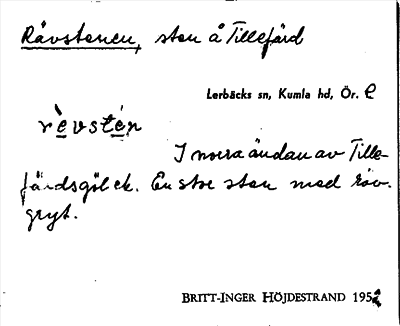 Rävstenen, sten å Tillefjärd
Lerbäcks sn, Kumla hd, Ör. l
rèvstén
I norra ändan av Tille-
fjärdsgölek. En stor sten med räv-
gryt.
BRITT-INGER HÖJDESTRAND 1952